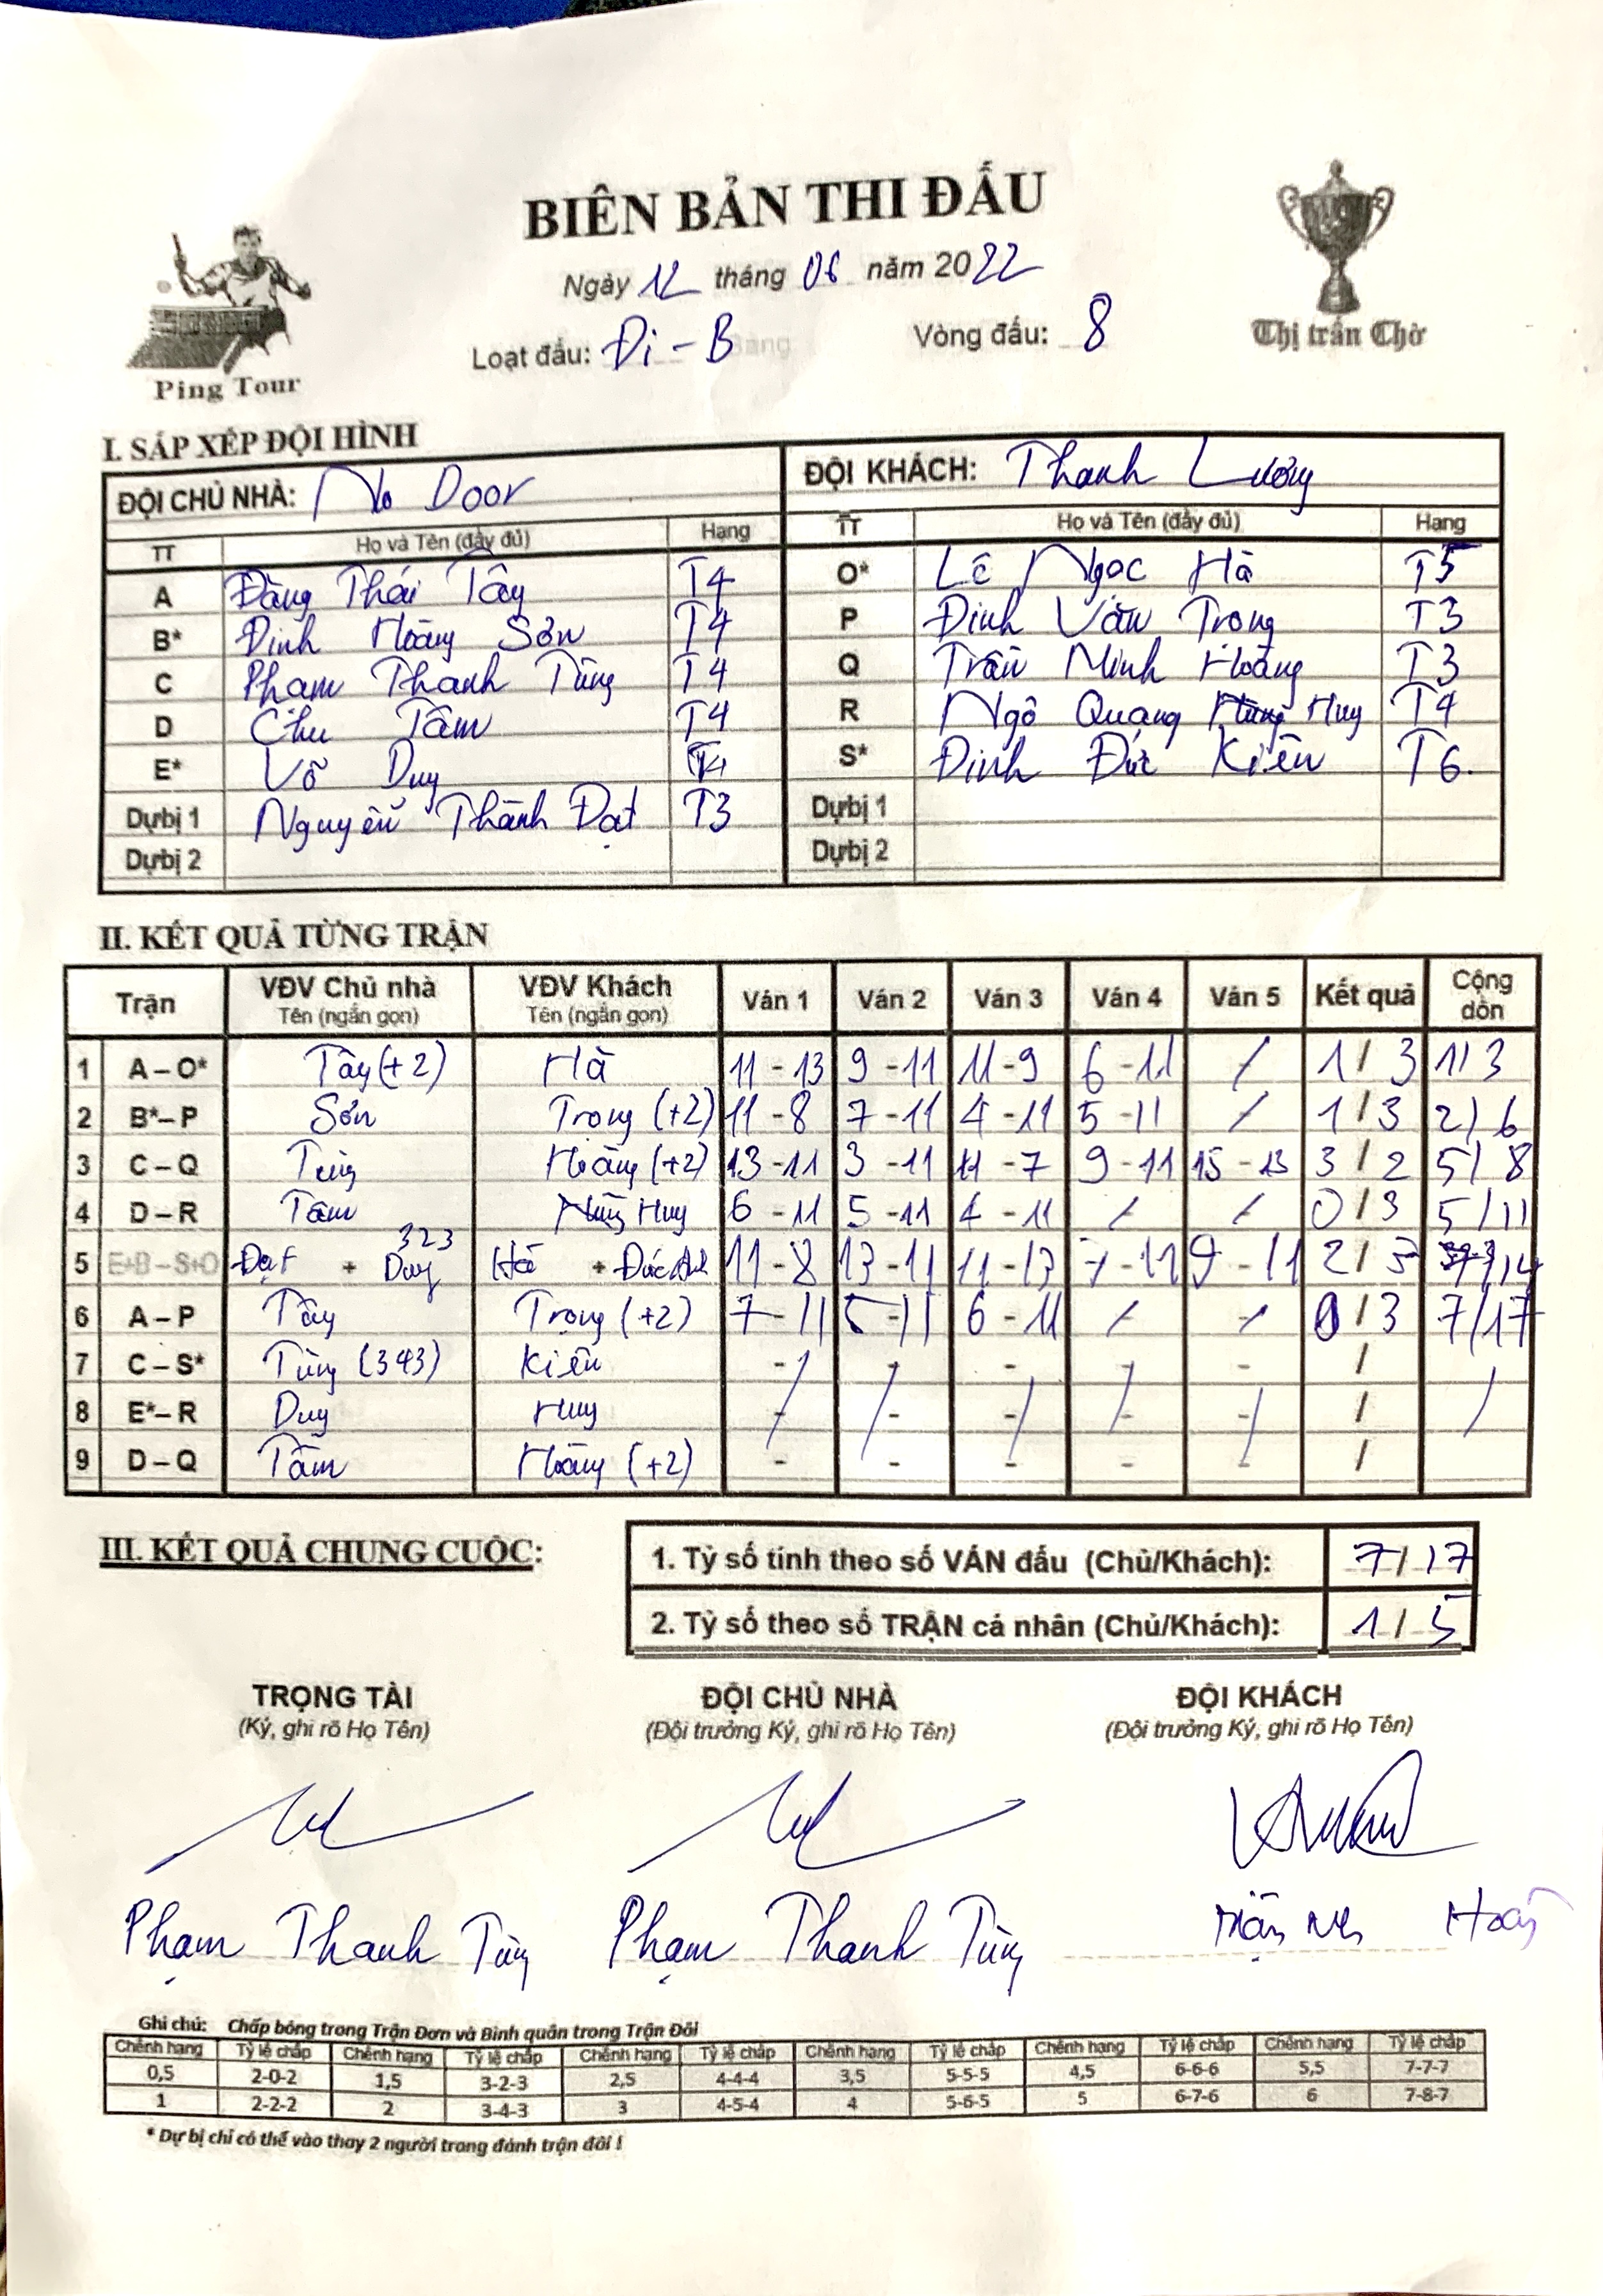 BIÊN BẢN THI ĐẤU
Ngày 12 tháng 06 năm 2022
Loạt đấu: Đi - B Vòng đấu: 8
Ping Tour
Thị trấn Chờ
I. SẮP XẾP ĐỘI HÌNH
ĐỘI CHỦ NHÀ: No Door ĐỘI KHÁCH: Thanh Lương
TT Họ và Tên (đầy đủ) Hạng TT Họ và Tên (đầy đủ) Hạng
A Đặng Thái Tây T4 O* Lê Ngọc Hà T5
B* Đinh Hoàng Sơn T4 P Đinh Văn Trọng T3
C Phạm Thanh Tùng T4 Q Trần Minh Hoàng T3
D Chu Tâm T4 R Ngô Quang Huy T4
E* Võ Duy S* Đinh Đức Kiên T6
Dự bị 1 Nguyễn Thành Đạt T3 Dự bị 1
Dự bị 2 Dự bị 2
II. KẾT QUẢ TỪNG TRẬN
Trận VĐV Chủ nhà Tên (ngắn gọn) VĐV Khách Tên (ngắn gọn) Ván 1 Ván 2 Ván 3 Ván 4 Ván 5 Kết quả Cộng dồn
1 A – O* Tây (+2) Hà 11 - 13 9 - 11 11 - 9 6 - 11 / 1 / 3 1/3
2 B* – P Sơn Trọng (+2) 11 - 8 7 - 11 4 - 11 5 - 11 / 1 / 3 2/6
3 C – Q Tùng Hoàng (+2) 13 - 11 3 - 11 11 - 7 9 - 11 15 - 13 3 / 2 5/8
4 D – R Tâm Huy 6 - 11 5 - 11 4 - 11 / / 0 / 3 5/11
5 E+B – S+O Đạt + Duy 323 Hà + Đức 11 - 8 13 - 11 11 - 13 7 - 11 9 - 11 2 / 3
6 A – P Tây Trọng (+2) 7 - 11 5 - 11 6 - 11 / / 0 / 3 7/17
7 C – S* Tùng (343) Kiên - - - - - /
8 E* – R Duy Huy - - - - - /
9 D – Q Tâm Hoàng (+2) - - - - - /
III. KẾT QUẢ CHUNG CUỘC:
1. Tỷ số tính theo số VÁN đấu (Chủ/Khách): 7/17
2. Tỷ số theo số TRẬN cá nhân (Chủ/Khách): 1/5
TRỌNG TÀI ĐỘI CHỦ NHÀ ĐỘI KHÁCH
(Ký, ghi rõ Họ Tên) (Đội trưởng Ký, ghi rõ Họ Tên) (Đội trưởng Ký, ghi rõ Họ Tên)
Phạm Thanh Tùng Phạm Thanh Tùng
Ghi chú: Chấp bóng trong Trận Đơn và Bình quân trong Trận Đôi
Chênh hạng Tỷ lệ chấp Chênh hạng Tỷ lệ chấp Chênh hạng Tỷ lệ chấp Chênh hạng Tỷ lệ chấp Chênh hạng Tỷ lệ chấp Chênh hạng Tỷ lệ chấp
0,5 2-0-2 1,5 3-2-3 2,5 4-4-4 3,5 5-5-5 4,5 6-6-6 5,5 7-7-7
1 2-2-2 2 3-4-3 3 4-5-4 4 5-6-5 5 6-7-6 6 7-8-7
* Dự bị chỉ có thể vào thay 2 người trong đánh trận đôi !